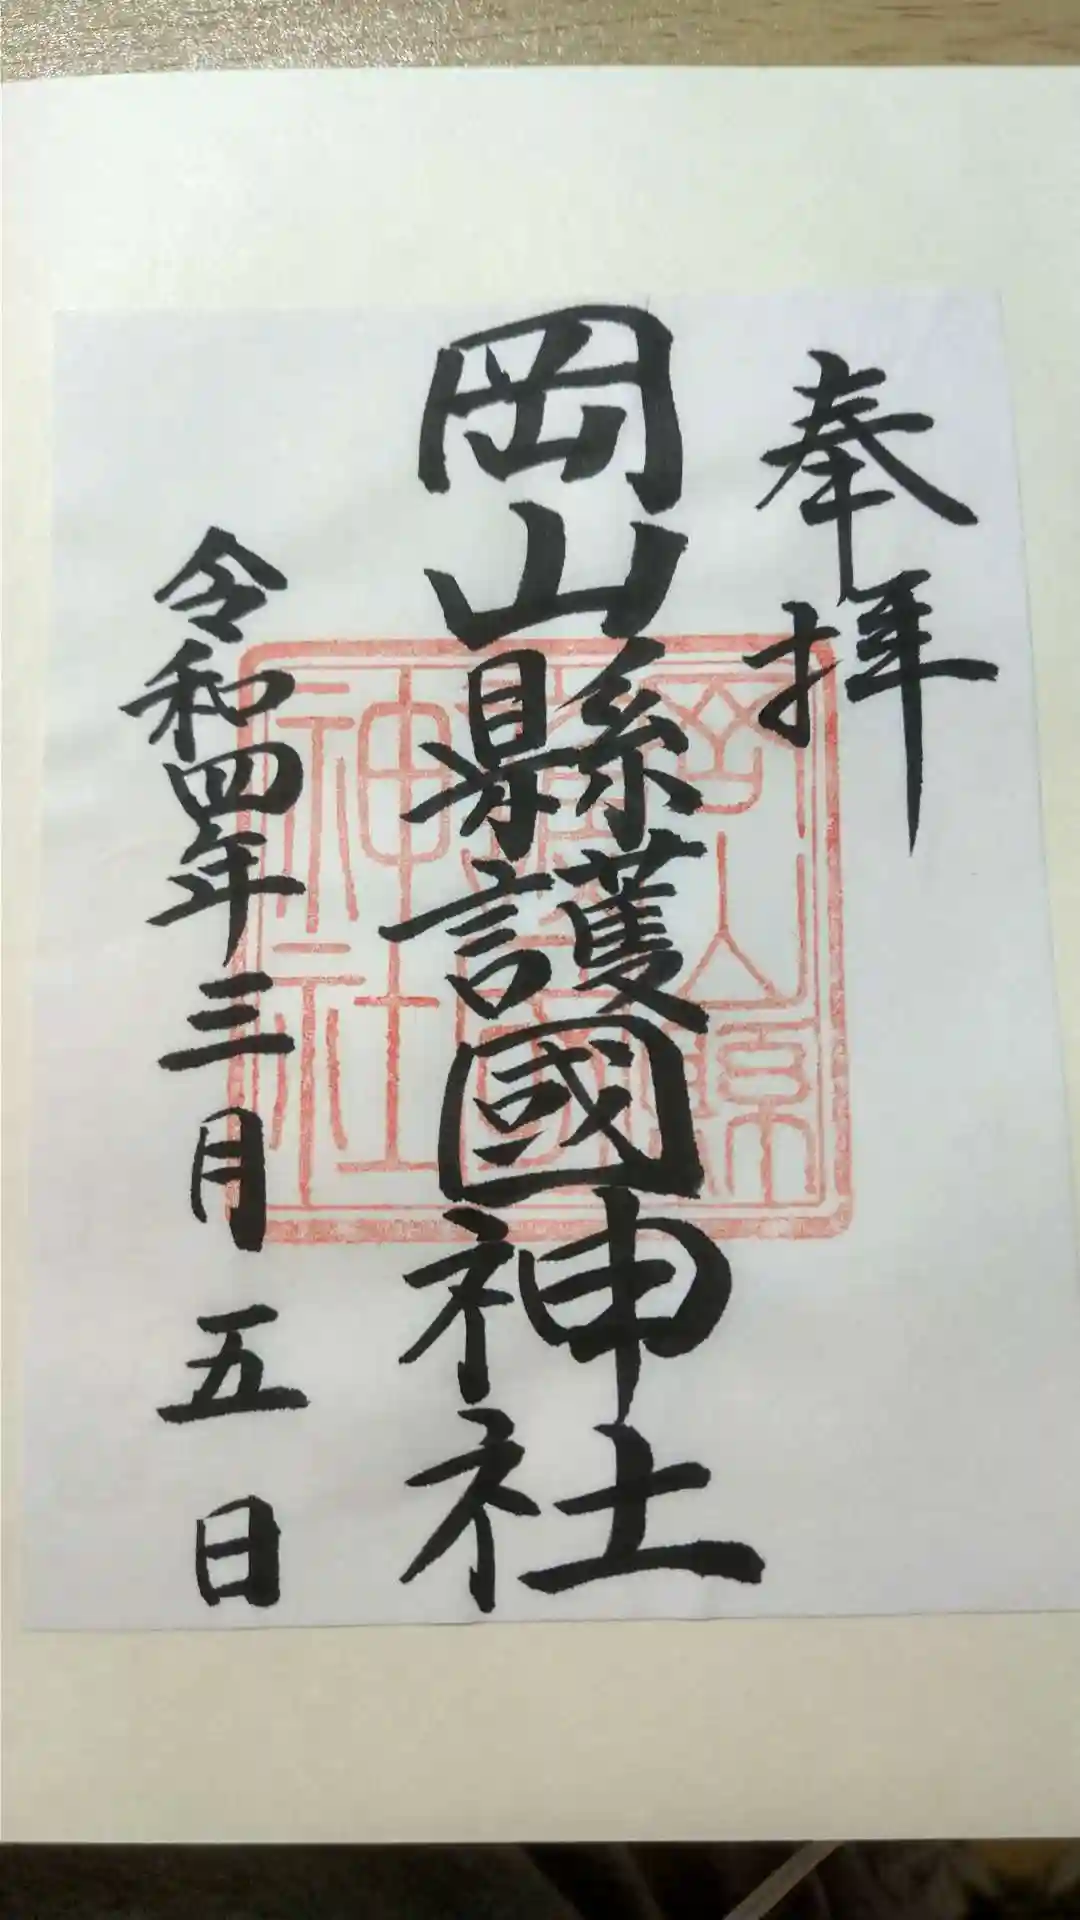 奉拝
岡山縣護國神社
令和四年三月五日
岡山縣
護國
神社